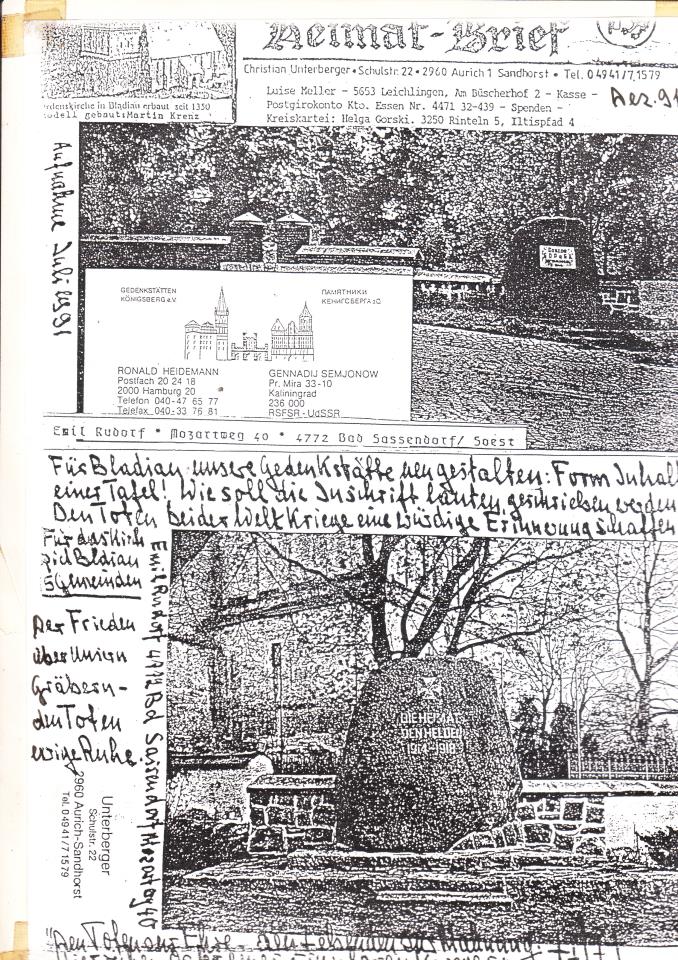 Heimat-Brief
Christian Unterberger • Schulstr. 22 • 2960 Aurich 1 Sandhorst • Tel. 04941/71579
Luise Meller - 5653 Leichlingen, Am Büscherhof 2 - Kasse -
Postgirokonto Kto. Essen Nr. 4471 32-439 - Spenden -
Kreiskartei: Helga Gorski. 3250 Rinteln 5, Iltispfad 4
Dez. 91
rdenskirche in Bladiau erbaut seit 1350
odell gebaut: Martin Krenz
Aufnahme Juli 1991
GEDENKSTÄTTEN
KÖNIGSBERG e.V
ПАМЯТНИКИ
КЕНИГСБЕРГА
RONALD HEIDEMANN
Postfach 20 24 18
2000 Hamburg 20
Telefon 040-47 65 77
Telefax 040-33 76 81
GENNADIJ SEMJONOW
Pr. Mira 33-10
Kaliningrad
236 000
RSFSR-UdSSR
Emil Rudorf * Mozartweg 40 * 4772 Bad Sassendorf/ Soest
Für Bladiau unsere Gedenkstätte neu gestalten: Form Inhalt
einer Tafel! Wie soll die Inschrift lauten, geschrieben werden
Den Toten beider Weltkriege eine würdige Erinnerung schaffen
Für das Kirch
spiel Bladiau
5 Gemeinden
Der Frieden
über unsern
Gräbern -
den Toten
ewige Ruhe.
Emil Rudorf 4772 Bad Sassendorf Mozartweg 40
Unterberger
Schulstr. 22
2960 Aurich-Sandhorst
Tel. 04941/71579
DIE HEIMAT
DEN HELDEN
1914-1918
"Den Toten zur Ehre - den Lebenden zur Mahnung!